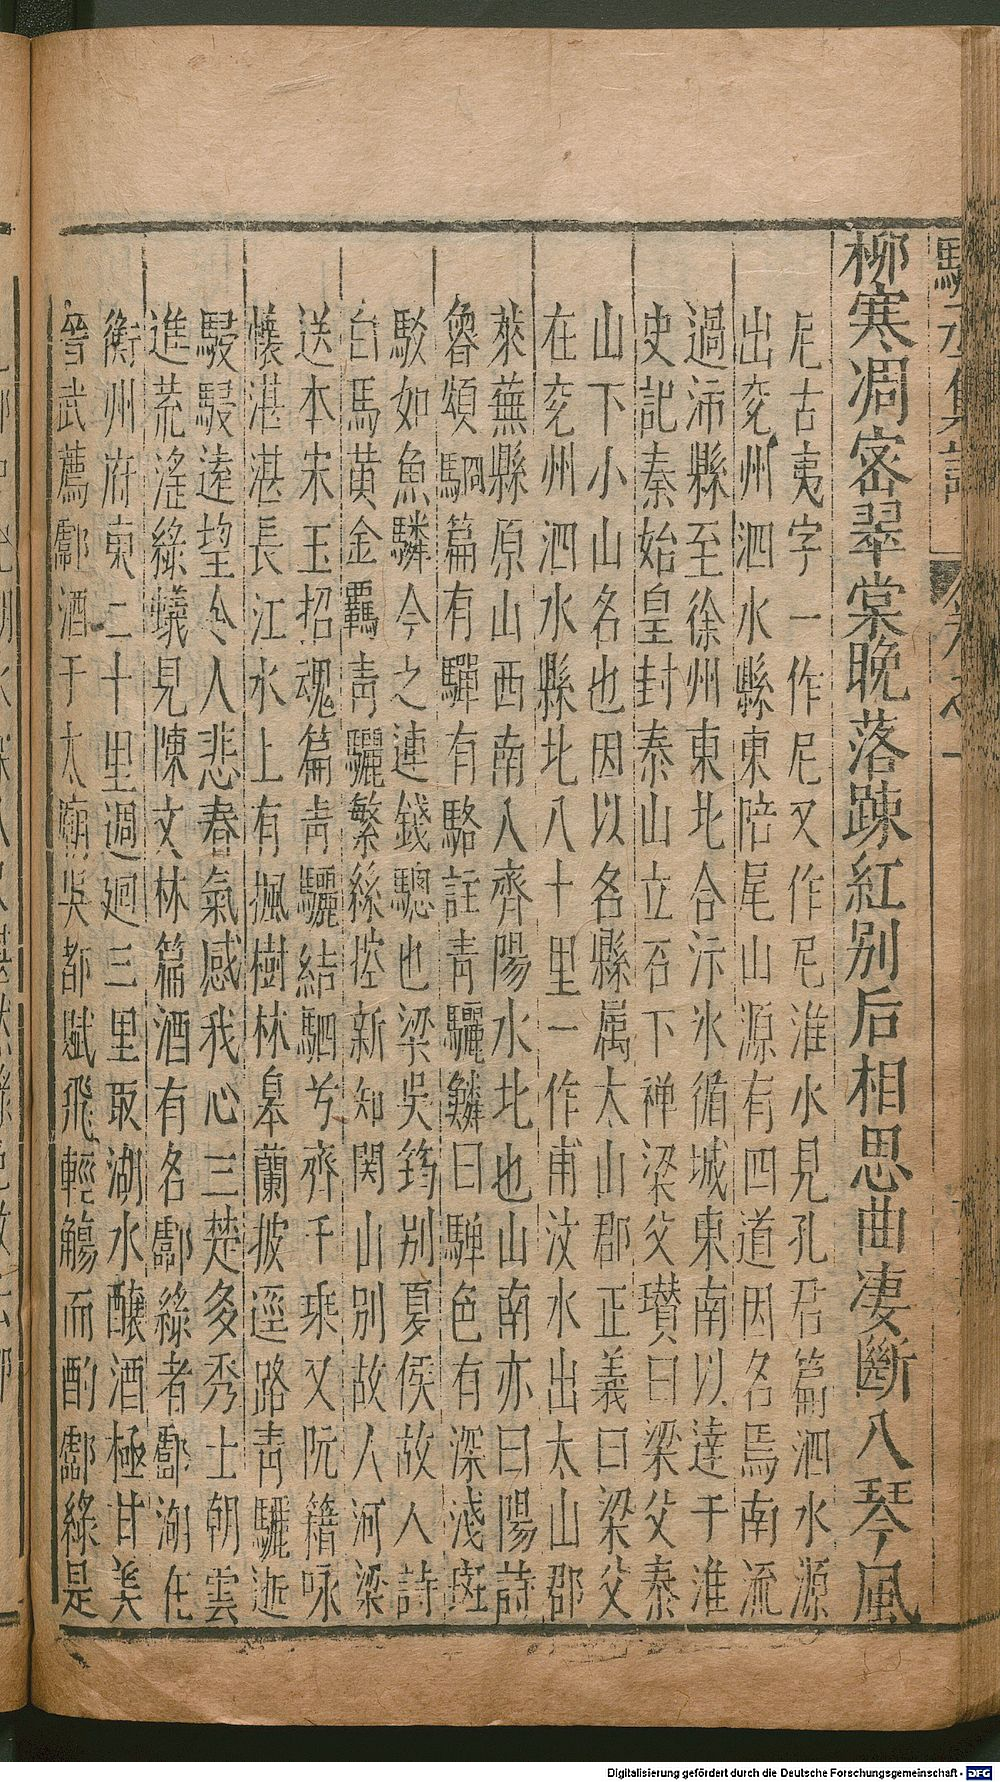 柳寒凋密翠棠晚落踈紅別后相思曲凄斷入琴風
𡰥古夷字一作尼又作𡰥淮水見孔君篇泗水源
出兗州泗水縣東陪尾山源有四道因名焉南流
過沛縣至徐州東北合汴水循城東南以達于淮
史記秦始皇封泰山立石下禅梁父瓚曰梁父泰
山下小山名也因以名縣属太山郡正義曰梁父
在兗州泗水縣北八十里一作甫汶水出太山郡
萊蕪縣原山西南入齊陽水北也山南亦曰陽詩
魯頌駉篇有驒有駱註青驪驎曰驒色有深淺斑
駁如魚驎今之連錢驄也梁吳筠別夏侯故人詩
白馬黃金羈青驪繁絲控新知関山別故人河梁
送本宋玉招魂篇青驪結駟兮齊千乗又阮籍咏
懐湛湛長江水上有楓樹林皋蘭披逕路青驪逝
駸駸遠望令人悲春氣感我心三楚多秀士朝雲
進荒滛綠蟻見陳文林篇酒有名酃綠者酃湖在
衡州府東二十里週廻三里取湖水釀酒極甘美
晉武薦酃酒于太廟吳都賦飛輕觴而酌酃綠是
Digitalisierung gefördert durch die Deutsche Forschungsgemeinschaft - DFG